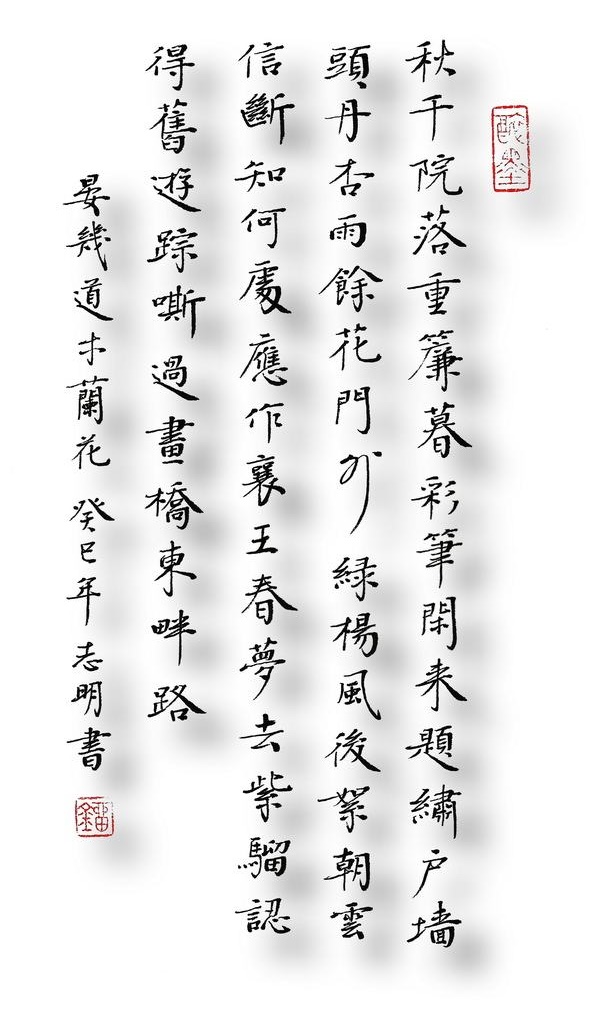 秋千院落重簾暮彩筆閑来題繡户墙
頭丹杏雨餘花門外緑楊風後絮朝雲
信斷知何處應作襄王春夢去紫騮認
得舊遊踪嘶過畫橋東畔路
晏幾道木蘭花 癸巳年志明書